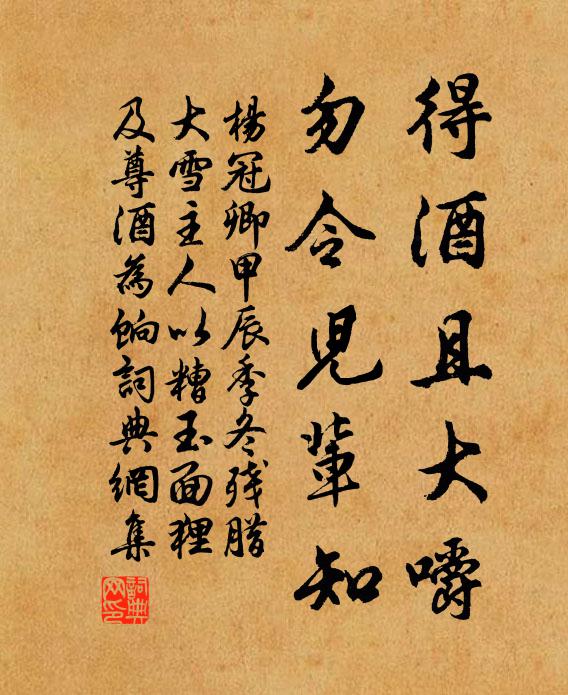 得酒且大嚼
勿令兒輩知
楊冠卿甲辰季冬残腊
大雪主人以糟玉面狸
及尊酒為餉詞典網集
詞典
网印